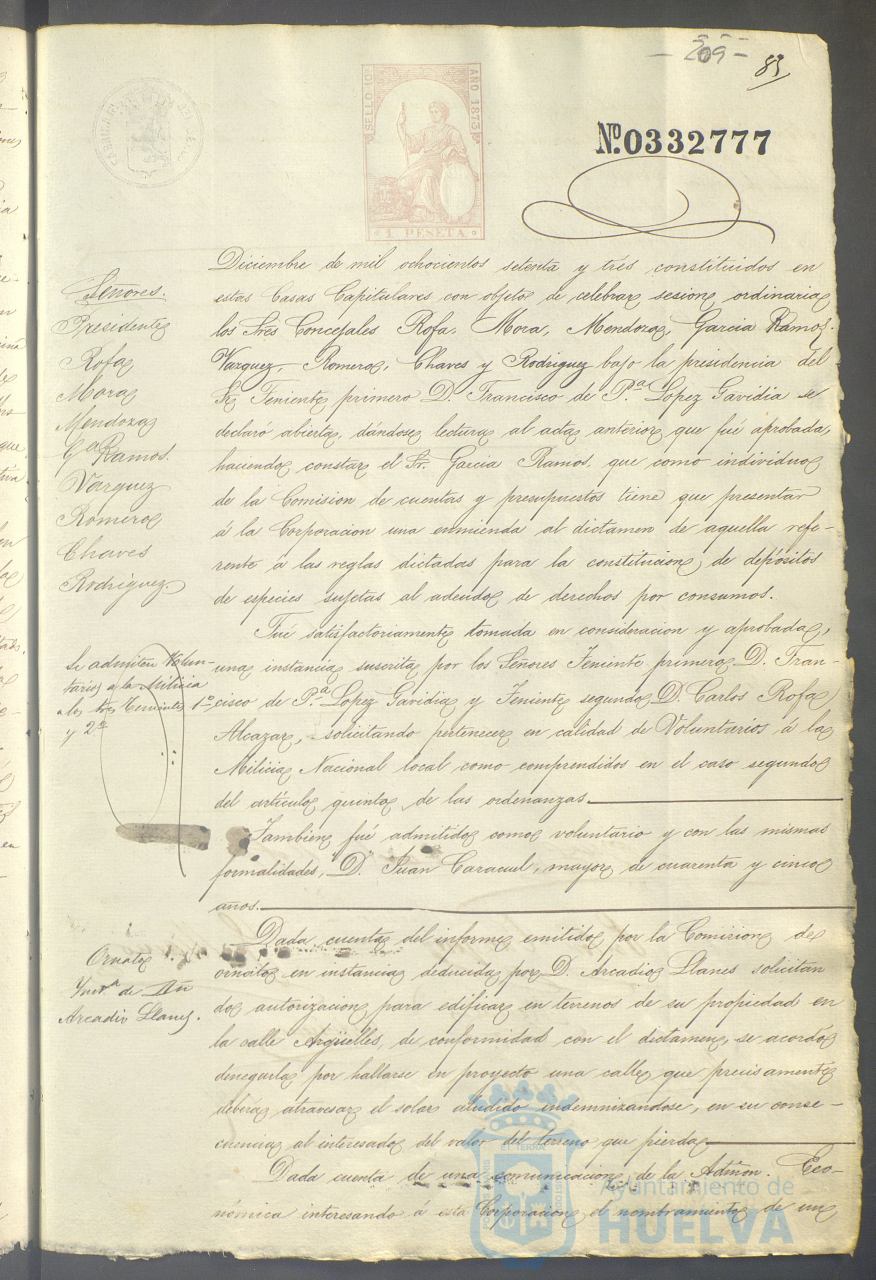 - 209 -
83
SELLO 10º
AÑO 1873
1 PESETA
Nº. 0332777
Señores.
Presidente
Rofa
Mora
Mendoza
Gª Ramos.
Vazquez
Romero
Chaves
Rodriguez.
Diciembre de mil ochocientos setenta y tres constituidos en
estas Casas Capitulares con objeto de celebrar sesion ordinaria
los Sres Concejales Rofa, Mora, Mendoza, Garcia Ramos,
Vazquez, Romero, Chaves y Rodriguez bajo la presidencia del
Sr Teniente primero D. Francisco de P.ª Lopez Gavidia se
declaró abierta, dándose lectura al acta anterior que fué aprobada,
haciendo constar el Sr. Garcia Ramos, que como individuo
de la Comision de cuentas y presupuestos tiene que presentar
á la Corporacion una enmienda al dictamen de aquella refe-
rente á las reglas dictadas para la constitucion de depósitos
de especies sujetas al adeudo de derechos por consumos.
Se admiten Volun-
tarios a la Milicia
a los Tenientes 1º
y 2º
Fué satisfactoriamente tomada en consideracion y aprobada,
una instancia suscrita por los Señores Teniente primero D. Fran-
cisco de P.ª Lopez Gavidia y Teniente segundo D. Carlos Rofa
Alcazar, solicitando pertenecer en calidad de Voluntarios á la
Milicia Nacional local como comprendidos en el caso segundo
del artículo quinto de las ordenanzas.
Tambien fué admitido como voluntario y con las mismas
formalidades, D. Juan Caracuel, mayor de cuarenta y cinco
años.
Ornato
de Dn
Arcadio Llanes.
Dada cuenta del informe emitido por la Comision de
ornato en instancia deducida por D. Arcadio Llanes solicitan
do autorizacion para edificar en terrenos de su propiedad en
la calle Argüelles, de conformidad con el dictamen, se acordó
denegarla por hallarse en proyecto una calle que precisamente
deberia atravesar el solar aludido indemnizandose, en su conse-
cuencia al interesado del valor del terreno que pierda
Dada cuenta de una comunicacion de la Admon. Eco-
nómica interesando á esta Corporacion el nombramiento de un
Ayuntamiento de
HUELVA